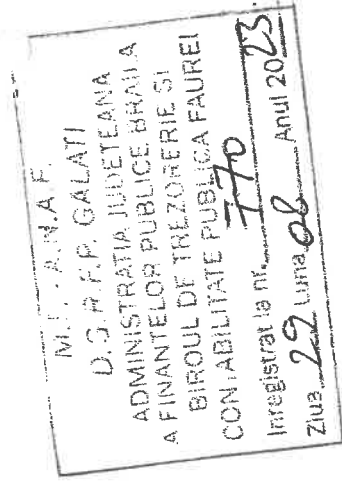 M.F. - A.N.A.F.
D.G.R.F.P. GALATI
ADMINISTRATIA JUDETEANA
A FINANTELOR PUBLICE BRAILA
BIROUL DE TREZORERIE SI
CONTABILITATE PUBLICA FAUREI
Inregistrat la nr. 770
Ziua 29 Luna 08 Anul 2023